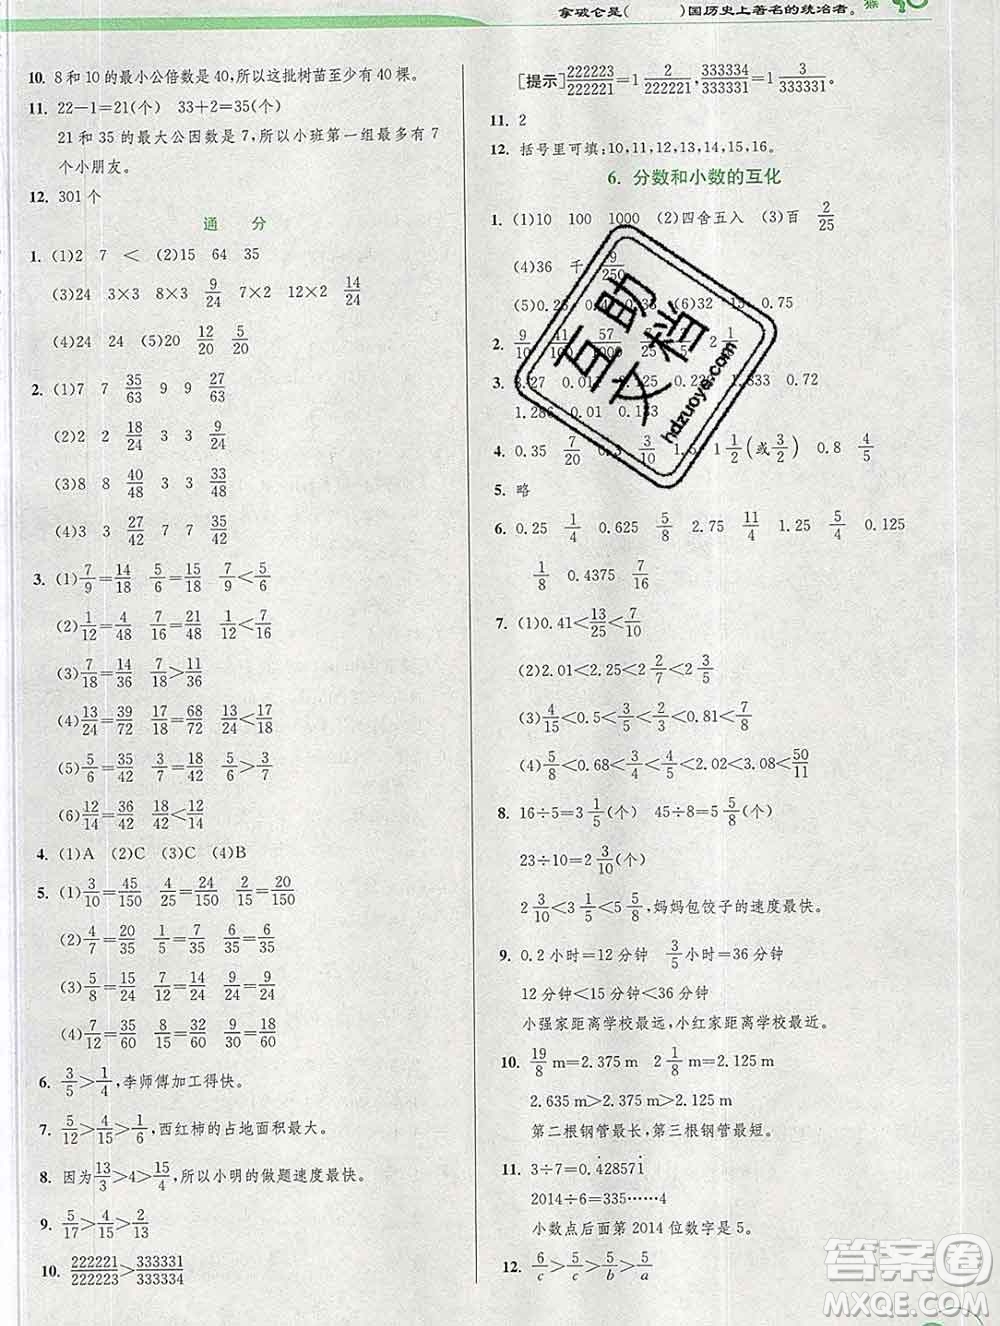 拿破仑是(  )国历史上著名的统治者。 猴
10. 8和10的最小公倍数是40,所以这批树苗至少有40棵。
11. 22-1=21(个) 33+2=35(个)
21和35的最大公因数是7,所以小班第一组最多有7
个小朋友。
12. 301个
通 分
1. (1)2 7 < (2)15 64 35
(3)24 3×3 8×3 9/24 7×2 12×2 14/24
(4)24 24 (5)20 12/20 5/20
2. (1)7 7 35/63 9 9 27/63
(2)2 2 18/24 3 3 9/24
(3)8 8 40/48 3 3 33/48
(4)3 3 27/42 7 7 35/42
3. (1)7/9=14/18 5/6=15/18 7/9<5/6
(2)1/12=4/48 7/16=21/48 1/12<7/16
(3)7/18=14/36 7/18>11/36
(4)13/24=39/72 17/18=68/72 13/24<17/18
(5)5/6=35/42 3/7=18/42 5/6>3/7
(6)12/14=36/42 18/42<12/14
4. (1)A (2)C (3)C (4)B
5. (1)3/10=45/150 4/25=24/150 2/15=20/150
(2)4/7=20/35 1/5=7/35 9/35=9/35
(3)5/8=15/24 7/12=14/24 9/24=9/24
(4)7/20=21/60 4/15=16/60 9/60=9/60
6. 3/5>1/4,李师傅加工得快。
7. 5/12>4/15>1/6,西红柿的占地面积最大。
8. 因为13/3>4>15/4,所以小明的做题速度最快。
9. 5/17>4/15>2/13
10. 222221/222223>333331/333334
[提示]222223/222221=1 2/222221,333334/333331=1 3/333331。
11. 2
12. 括号里可填:10,11,12,13,14,15,16。
6. 分数和小数的互化
1. (1)10 100 1000 (2)四舍五入 (3)百 2/25
(4)36 千 9/250
(5)0.25 0.38 (6)32 15 0.75
2. 9/10 41/100 57/1000 4/25 2 1/
3. 3.27 0.013 0.125 0.225 1.833 0.72
1.286 0.01 0.133
4. 0.35 7/20 3/10 1.5 1 1/2(或3/2) 0.8 4/5
5. 略
6. 0.25 1/4 0.625 5/8 2.75 11/4 1.25 5/4 0.125
1/8 0.4375 7/16
7. (1)0.41<13/25<7/10
(2)2.01<2.25<2 2/7<2 3/5
(3)4/15<0.5<3/5<2/3<0.81<7/8
(4)5/8<0.68<3/4<2.02<3.02<50/11
8. 16÷5=3 1/5(个) 45÷8=5 5/8(个)
23÷10=2 3/10(个)
2 3/10<3 1/5<5 5/8,妈妈包饺子的速度最快。
9. 0.2小时=12分钟 3/5小时=36分钟
12分钟<15分钟<36分钟
小强家距离学校最远,小红家距离学校最近。
10. 19/8 m=2.375 m 2 1/8 m=2.125 m
2.635 m>2.375 m>2.125 m
第二根钢管最长,第三根钢管最短。
11. 3÷7=0.4̇28571̇
2014÷6=335……4
小数点后面第2014位数字是5。
12. 6/c>5/c>5/b>5/a
互助文档
hdzuoye.com
答案圈
MXQE.COM